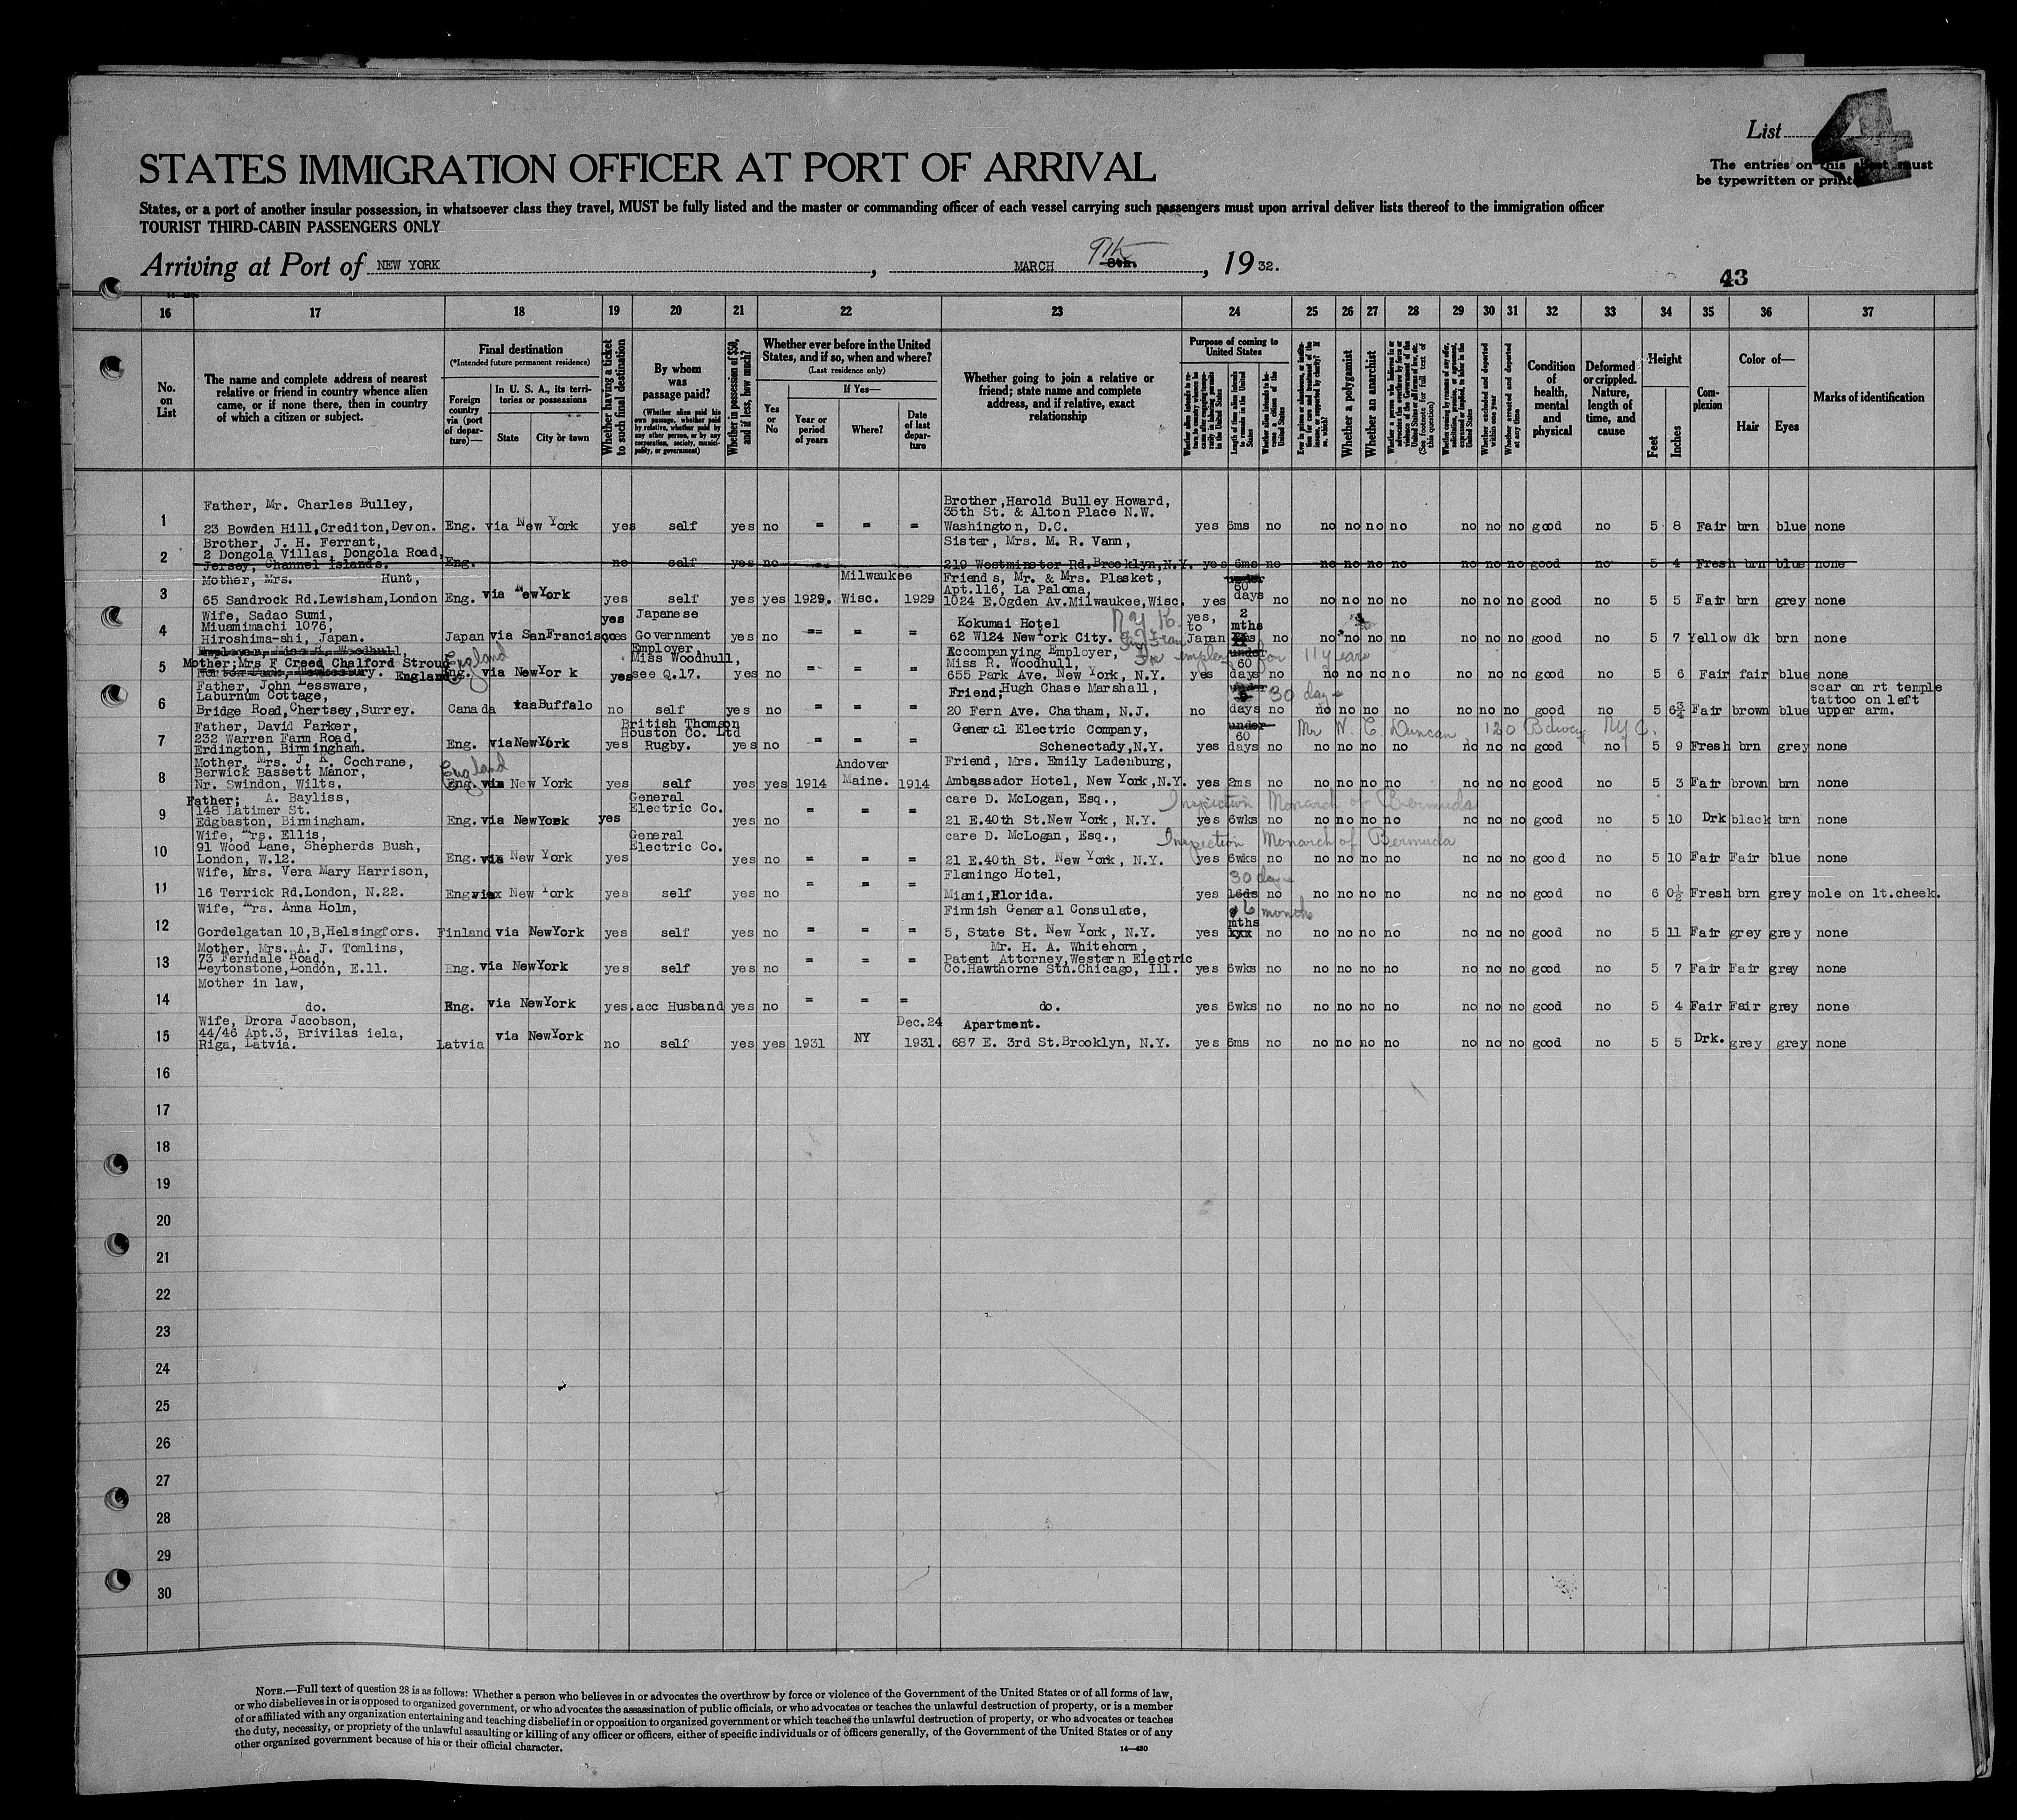 List 4
STATES IMMIGRATION OFFICER AT PORT OF ARRIVAL
The entries on this sheet must
be typewritten or printed
States, or a port of another insular possession, in whatsoever class they travel, MUST be fully listed and the master or commanding officer of each vessel carrying such passengers must upon arrival deliver lists thereof to the immigration officer
TOURIST THIRD-CABIN PASSENGERS ONLY
Arriving at Port of NEW YORK, MARCH 8th. 9th, 1932.
43
16 17 18 19 20 21 22 23 24 25 26 27 28 29 30 31 32 33 34 35 36 37
No. on List
The name and complete address of nearest relative or friend in country whence alien came, or if none there, then in country of which a citizen or subject.
Final destination
(*Intended future permanent residence)
Foreign country via (port of departure)—
In U. S. A., its territories or possessions
State
City or town
Whether having a ticket to such final destination
By whom was passage paid?
(Whether alien paid his own passage, whether paid by relative, whether paid by any other person, or by any corporation, society, municipality, or government)
Whether in possession of $50, and if less, how much?
Whether ever before in the United States, and if so, when and where?
(Last residence only)
Yes or No
If Yes—
Year or period of years
Where?
Date of last departure
Whether going to join a relative or friend; state name and complete address, and if relative, exact relationship
Purpose of coming to United States
Length of time alien intends to remain in the United States
Whether alien intends to become a citizen of the United States
Whether a polygamist
Whether an anarchist
(See footnote for full text of this question)
Whether excluded and deported within one year
Whether arrested and deported at any time
Condition of health, mental and physical
Deformed or crippled. Nature, length of time, and cause
Height
Feet
Inches
Complexion
Color of—
Hair
Eyes
Marks of identification
1 Father, Mr. Charles Bulley, 23 Bowden Hill,Crediton,Devon. Eng. via New York yes self yes no = = = Brother,Harold Bulley Howard, 35th St. & Alton Place N.W. Washington, D.C. yes 6ms no no no no no no no no good no 5 8 Fair brn blue none
2 Brother, J. H. Ferrant, 2 Dongola Villas, Dongola Road, Jersey, Channel Islands. Eng. no self yes no Sister, Mrs. M. R. Vann, 219 Westminster Rd,Brooklyn,N.Y. yes 6ms no no no no no no no no good no 5 4 Fresh brn blue none
3 Mother, Mrs. Hunt, 65 Sandrock Rd.Lewisham,London Eng. via New York yes self yes yes 1929. Milwaukee Wisc. 1929 Friends, Mr. & Mrs. Plasket, Apt.116, La Paloma, 1024 E.Ogden Av.Milwaukee,Wisc. yes under 60 days no no no no no no no no good no 5 5 Fair brn grey none
4 Wife, Sadao Sumi, Miuamimachi 1076, Hiroshima-shi, Japan. Japan via SanFrancisco yes yes Japanese Government yes no == = = Kokumai Hotel 62 W124 New York City. yes, to Japan 2 mths no no no no no no no no good no 5 7 Yellow dk brn none
5 Mother;Mrs F Creed Chalford Stroud England England Eng. via NewYork yes Employer, Miss Woodhull, see Q.17. yes no = = = Accompanying Employer, Miss R. Woodhull, 655 Park Ave. New York, N.Y. for 11 years yes under 60 days no no no no no no no no good no 5 6 Fair fair blue none
6 Father, John Lessware, Laburnum Cottage, Bridge Road,Chertsey,Surrey. Canada Buffalo no self yes no = = = Friend,Hugh Chase Marshall, 20 Fern Ave. Chatham, N.J. no under days 30 days no no no no no no no no good no 5 6¾ Fair brown blue scar on rt temple tattoo on left upper arm.
7 Father, David Parker, 232 Warren Farm Road, Erdington, Birmingham. Eng. via NewYork yes British Thomson Houston Co. Ltd Rugby. yes no = = = General Electric Company, Schenectady,N.Y. yes under 60 days no Mr W. C. Duncan, 120 Bdway NYC. no no no no no no no good no 5 9 Fresh brn grey none
8 Mother, Mrs. J. K. Cochrane, Berwick Bassett Manor, Nr. Swindon, Wilts. England Eng. via New York yes self yes yes 1914 Andover Maine. 1914 Friend, Mrs. Emily Ladenburg, Ambassador Hotel, New York,N.Y. yes 2ms no no no no no no no no good no 5 3 Fair brown brn none
9 Father; A. Bayliss, 148 Latimer St. Edgbaston, Birmingham. Eng. via NewYork yes General Electric Co. yes no = = = care D. McLogan, Esq., 21 E.40th St.New York, N.Y. Inspection Monarch of Bermuda yes 6wks no no no no no no no no good no 5 10 Drk black brn none
10 Wife, Mrs. Ellis, 91 Wood Lane, Shepherds Bush, London, W.12. Eng. via New York yes General Electric Co. yes no = = = care D. McLogan, Esq., 21 E.40th St. New York, N.Y. Inspection Monarch of Bermuda yes 6wks no no no no no no no no good no 5 10 Fair Fair blue none
11 Wife, Mrs. Vera Mary Harrison, 16 Terrick Rd.London, N.22. Eng via New York yes self yes no = = = Flamingo Hotel, Miami,Florida. yes 16ds 30 days no no no no no no no no good no 6 0½ Fresh brn grey mole on lt.cheek.
12 Wife, Mrs. Anna Holm, Gordelgatan 10,B,Helsingfors. Finland via NewYork yes self yes no = = = Finnish General Consulate, 5, State St. New York, N.Y. yes mths 6 months no no no no no no no no good no 5 11 Fair grey grey none
13 Mother, Mrs. A. J. Tomlins, 73 Ferndale Road, Leytonstone,London, E.11. Eng. via NewYork yes self yes no = = = Mr. H. A. Whitehorn, Patent Attorney,Western Electric Co.Hawthorne Stn.Chicago, Ill. yes 6wks no no no no no no no no good no 5 7 Fair Fair grey none
14 Mother in law, do. Eng. via NewYork yes.acc Husband yes no = = = do. yes 6wks no no no no no no no no good no 5 4 Fair Fair grey none
15 Wife, Drora Jacobson, 44/46 Apt.3, Brivilas iela, Riga, Latvia. Latvia via NewYork no self yes yes 1931 NY Dec.24 1931. Apartment. 687 E. 3rd St.Brooklyn, N.Y. yes 6ms no no no no no no no no good no 5 5 Drk. grey grey none
16
17
18
19
20
21
22
23
24
25
26
27
28
29
30
NOTE.—Full text of question 28 is as follows: Whether a person who believes in or advocates the overthrow by force or violence of the Government of the United States or of all forms of law,
or who disbelieves in or is opposed to organized government, or who advocates the assassination of public officials, or who advocates or teaches the unlawful destruction of property, or is a member
of or affiliated with any organization entertaining and teaching disbelief in or opposition to organized government or which teaches the unlawful destruction of property, or who advocates or teaches
the duty, necessity, or propriety of the unlawful assaulting or killing of any officer or officers, either of specific individuals or of officers generally, of the Government of the United States or of any
other organized government because of his or their official character.
14—430